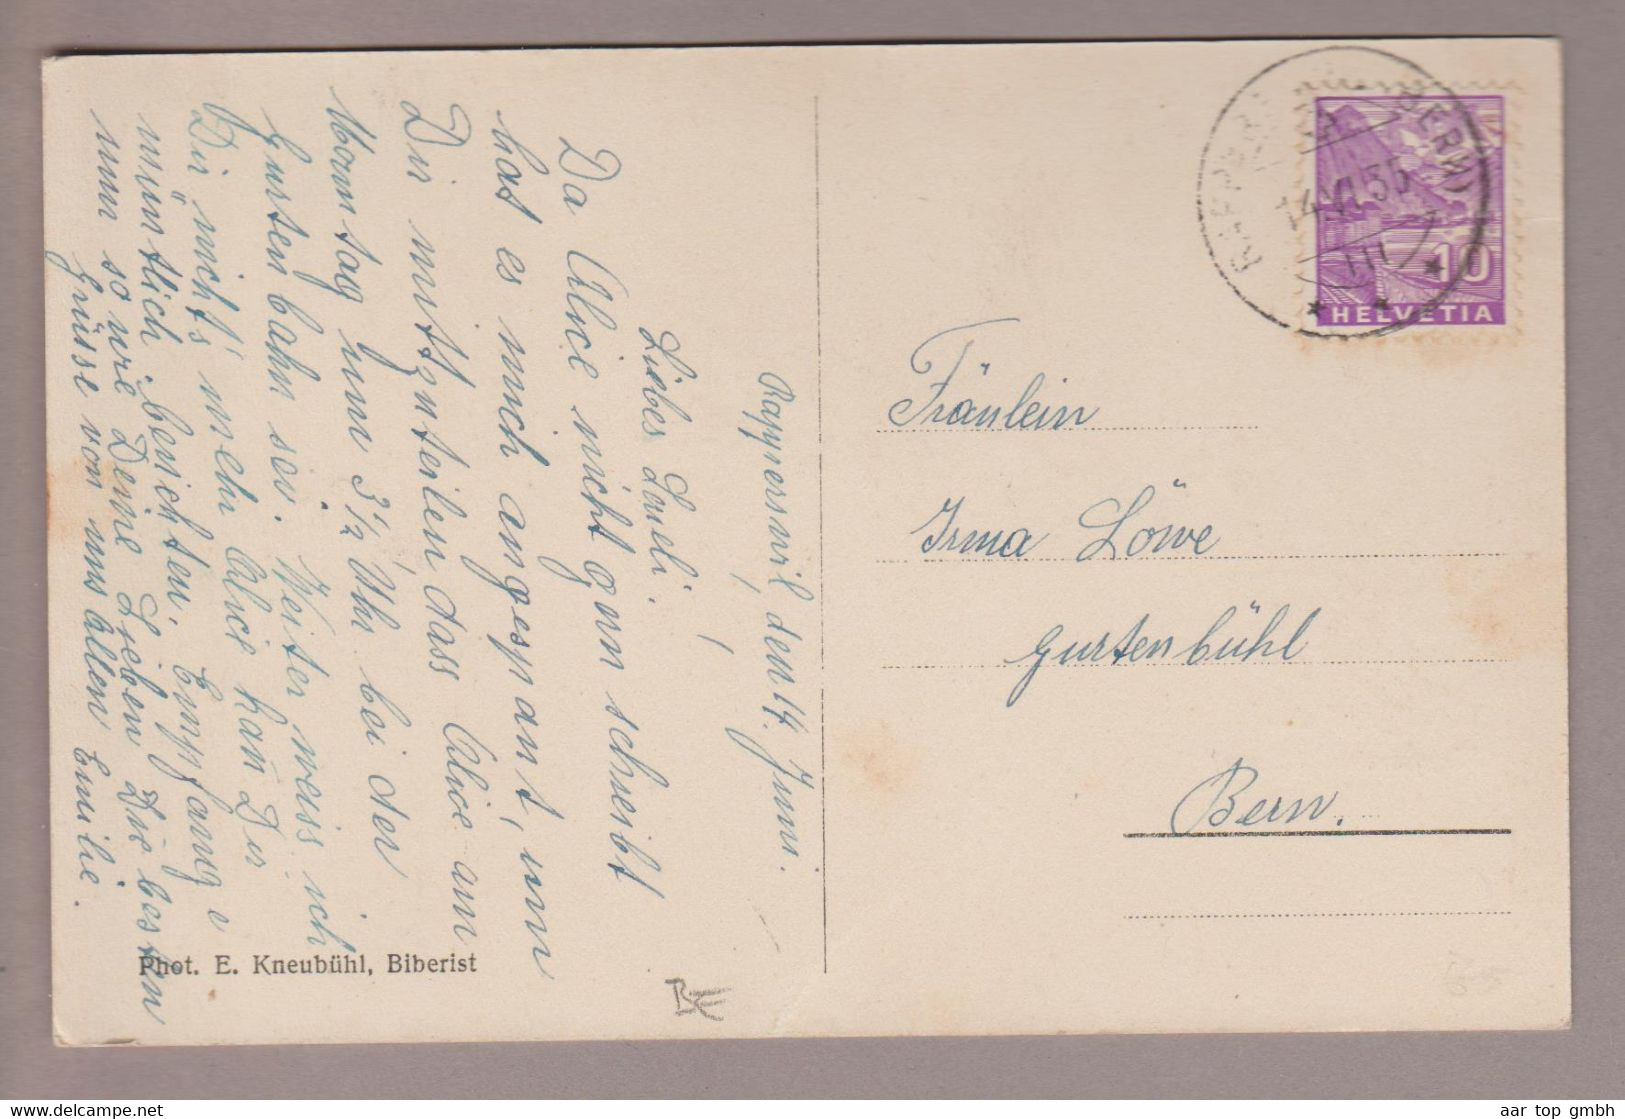 Rapperswil, den 14. Juni.
Liebes Loueli!
Da Alice nicht gern schreibt
hat es mich angespannt, um
Dir mitzuteilen dass Alice am
Montag um 3½ Uhr bei der
Gurtenbahn sei. Weiter weiss ich
Dir nichts mehr Alice kan̄ Dir
mündlich berichten. Empfange
nun so wie Deine Lieben Die besten
Grüsse von uns allen Emilie.
Phot. E. Kneubühl, Biberist
(BERN)
14.VI.35
III
10
HELVETIA
Fräulein
Irma Löwe
Gurtenbühl
Bern.
www.delcampe.net
aar top gmbh